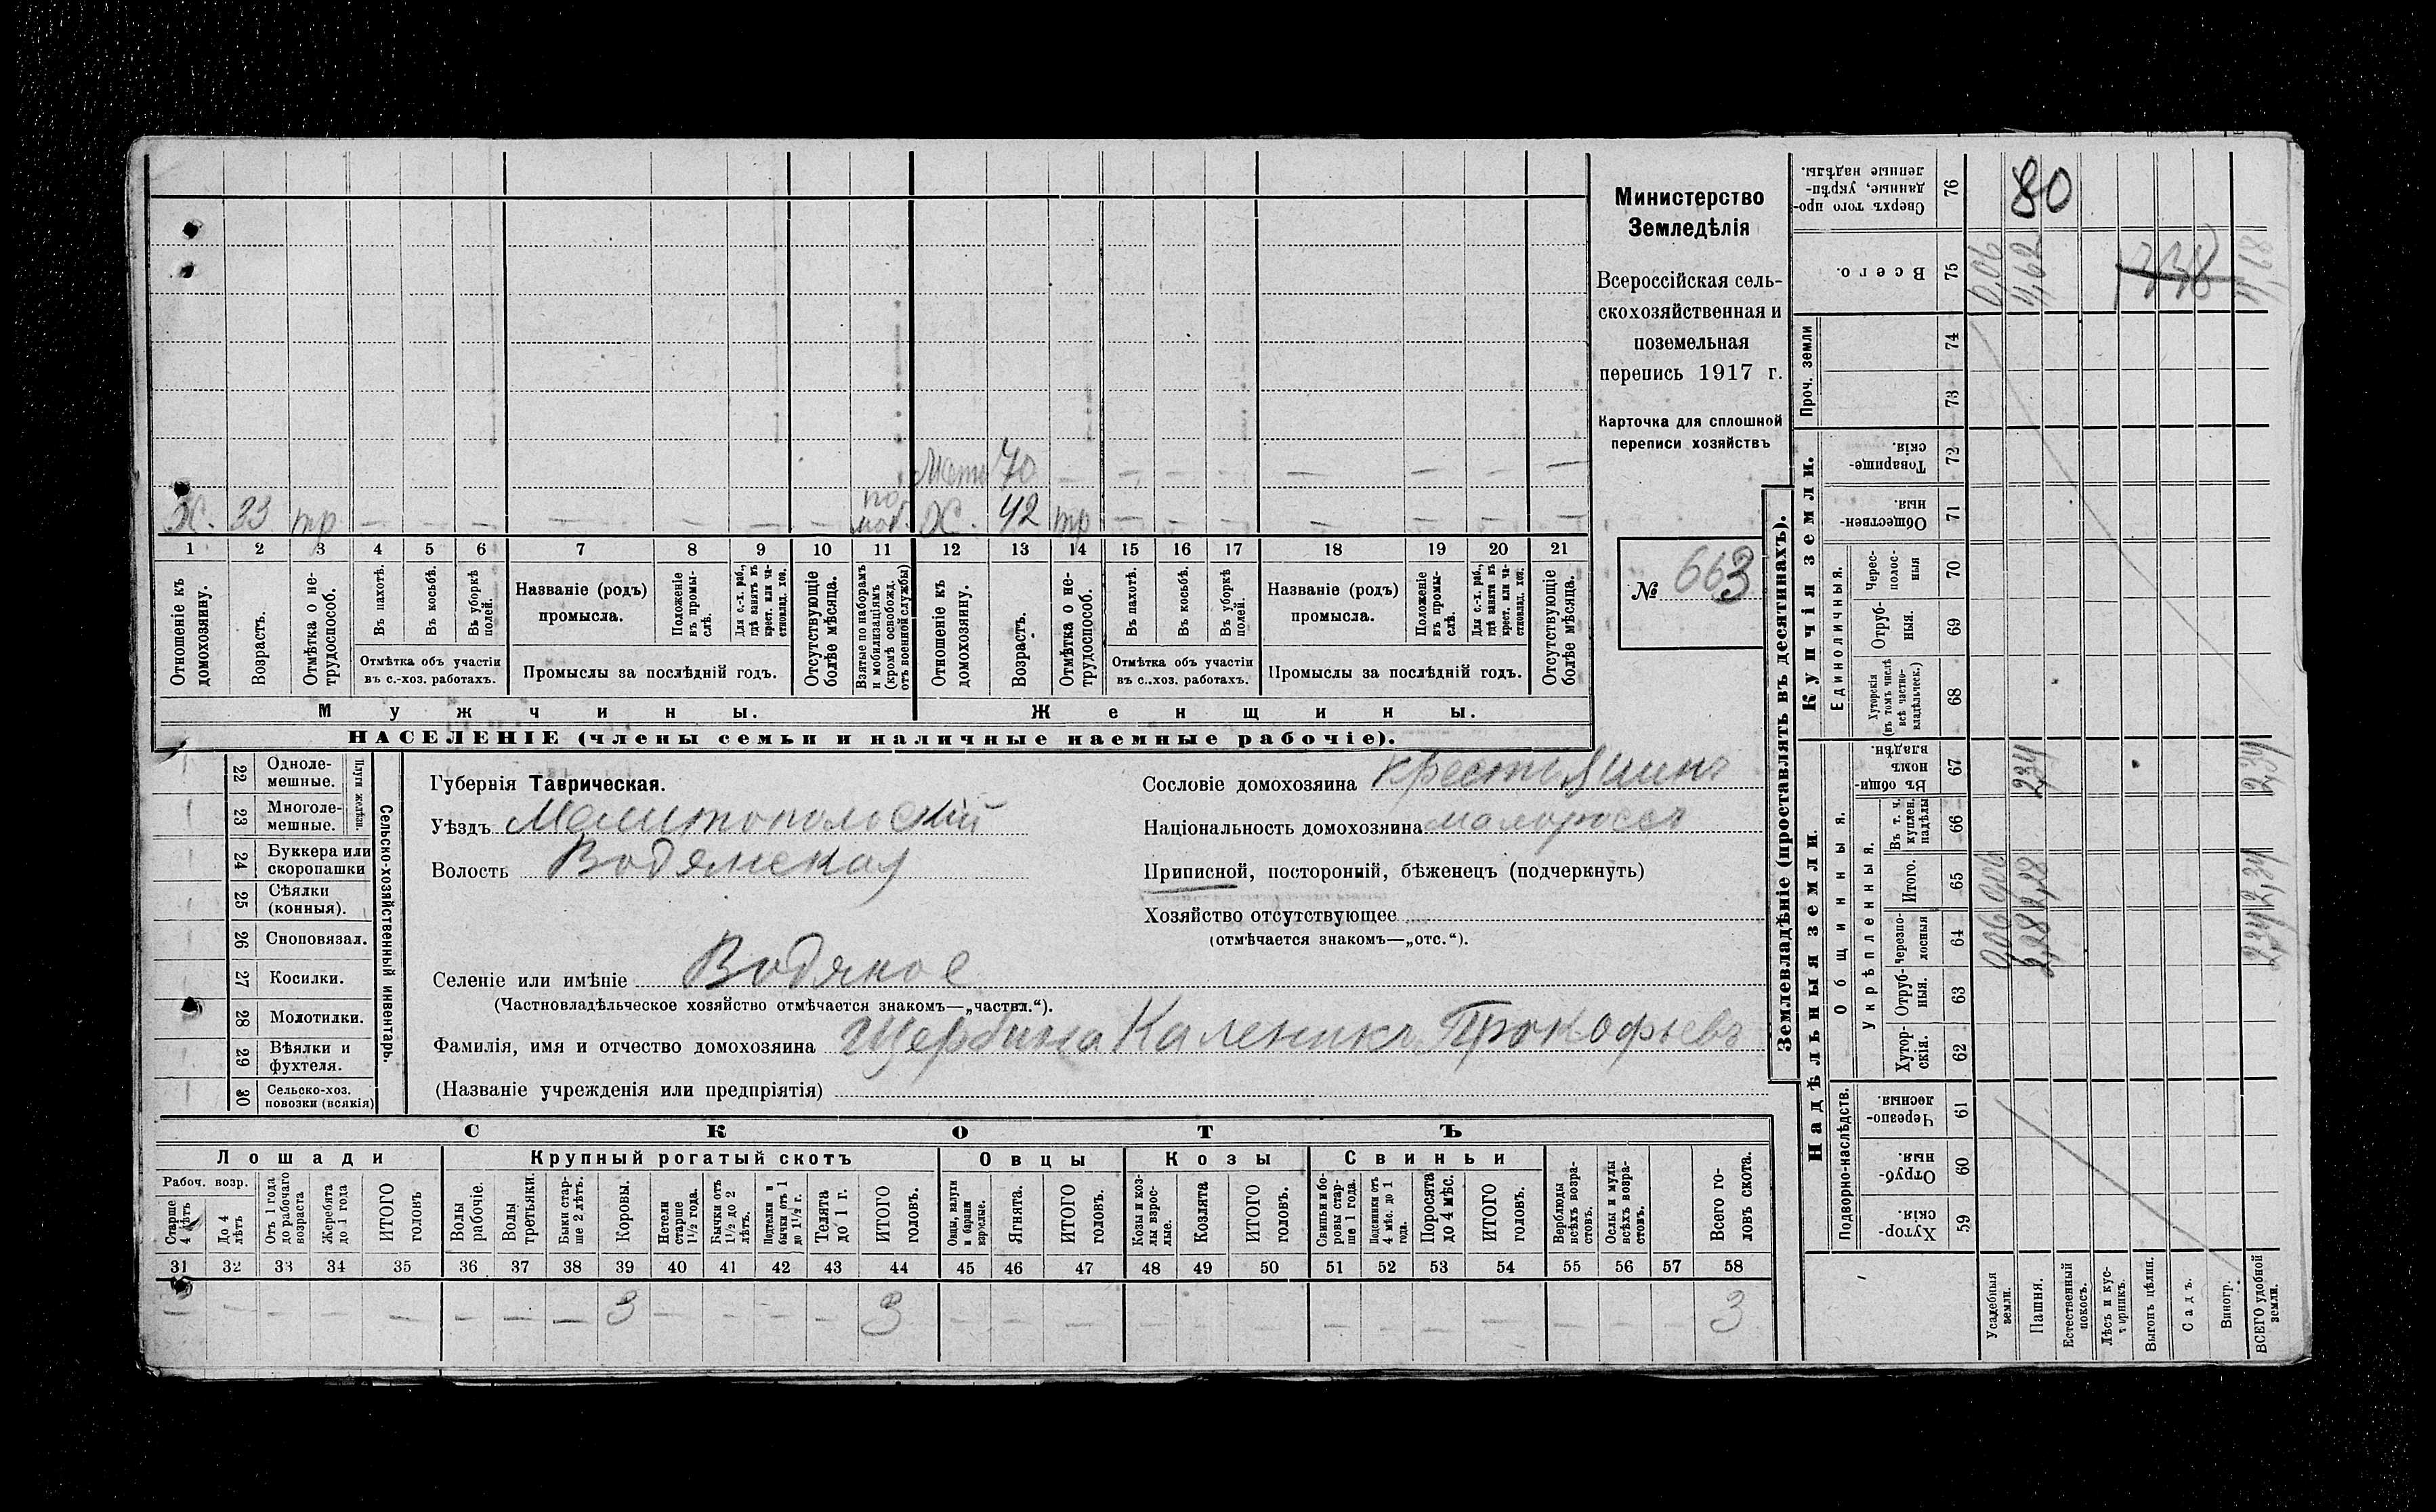 Министерство
Земледѣлія
Всероссійская сель-
скохозяйственная и
поземельная
перепись 1917 г.
Карточка для сплошной
переписи хозяйствъ
№ 663
Мать 70 — — — — — — — —
Х. 33 тр — — — — — — — по моб. Х. 42 тр — — — — — — —
1 2 3 4 5 6 7 8 9 10 11 12 13 14 15 16 17 18 19 20 21
Отношеніе къ домохозяину.
Возрастъ.
Отмѣтка о не-трудоспособ.
Въ пахотѣ.
Въ косьбѣ.
Въ уборкѣ полей.
Названіе (родъ) промысла.
Положеніе въ промы-слѣ.
Для с.-х. раб., гдѣ занятъ въ крест. или ча-стновлад. хоз.
Отсутствующіе болѣе мѣсяца.
Взятые по наборамъ и мобилизаціямъ (кромѣ освобожд. отъ военной службы)
Отношеніе къ домохозяину.
Возрастъ.
Отмѣтка о не-трудоспособ.
Въ пахотѣ.
Въ косьбѣ.
Въ уборкѣ полей.
Названіе (родъ) промысла.
Положеніе въ промы-слѣ.
Для с.-х. раб., гдѣ занята въ крест. или ча-стновлад. хоз.
Отсутствующіе болѣе мѣсяца.
Отмѣтка объ участіи въ с.-хоз. работахъ.
Промыслы за послѣдній годъ.
Отмѣтка объ участіи въ с..хоз. работахъ.
Промыслы за послѣдній годъ.
Мужчины. Женщины.
НАСЕЛЕНІЕ (члены семьи и наличные наемные рабочіе).
22 Одноле-мешные.
23 Многоле-мешные.
Плуги желѣзн.
24 Буккера или скоропашки
25 Сѣялки (конныя).
26 Сноповязал.
27 Косилки.
28 Молотилки.
29 Вѣялки и фухтеля.
30 Сельско-хоз. повозки (всякія)
Сельско-хозяйственный инвентарь.
Губернія Таврическая.
Уѣздъ Мелитопольскій
Волость Водянская
Селеніе или имѣніе Водяное
(Частновладѣльческое хозяйство отмѣчается знакомъ—„частвл.“).
Фамилія, имя и отчество домохозяина Щербина Каленикъ Прокофьевъ
(Названіе учрежденія или предпріятія)
Сословіе домохозяина крестьянинъ
Національность домохозяина малороссъ
Приписной, посторонній, бѣженецъ (подчеркнуть)
Хозяйство отсутствующее
(отмѣчается знакомъ—„отс.“).
СКОТЪ
Лошади Крупный рогатый скотъ Овцы Козы Свиньи
Рабоч. возр.
Старше 4 лѣтъ
До 4 лѣтъ
Отъ 1 года до рабочаго возраста
Жеребята до 1 года
ИТОГО головъ
Волы рабочіе.
Волы третьяки.
Быки стар-ше 2 лѣтъ.
Коровы.
Нетели старше 1½ года.
Бычки отъ 1½ до 2 лѣтъ.
Подтелки и бычки отъ 1 до 1½ г.
Телята до 1 г.
ИТОГО головъ.
Овцы, валухи и бараны взрослые.
Ягнята.
ИТОГО головъ.
Козы и коз-лы взрос-лые.
Козлята
ИТОГО головъ.
Свиньи и бо-ровы стар-ше 1 года.
Подсвинки отъ 4 мѣс. до 1 года.
Поросята до 4 мѣс.
ИТОГО головъ.
Верблюды всѣхъ возра-стовъ.
Ослы и мулы всѣхъ возра-стовъ.
Всего го-ловъ скота.
31 32 33 34 35 36 37 38 39 40 41 42 43 44 45 46 47 48 49 50 51 52 53 54 55 56 57 58
— — — — — — — — 3 — — — — 3 — — — — — — — — — — — — 3
Землевладѣніе (проставлять въ десятинахъ).
Надѣльныя земли. Купчія земли.
Подворно-наслѣдств.
Общинныя.
Укрѣпленныя.
Единоличныя.
Проч. земли
Хутор-скія. 59
Отруб-ныя. 60
Черезпо-лосныя. 61
Хутор-скія. 62
Отруб-ныя. 63
Черезпо-лосныя 64
Итого. 65
Въ т. ч. куплен. надѣлы 66
Въ общи-номъ владѣн. 67
Хуторскія (въ томъ числѣ всѣ частно-владѣльческ.) 68
Отруб-ныя. 69
Черес-полос-ныя 70
Обществен-ныя. 71
Товарище-скія. 72
73
74
Всего. 75
Сверхъ того про-данные, укрѣп-ленные надѣлы. 76
Усадебныя земли. 0,06 0,06 0,06
Пашня. 2,28 2,28 2,34 4,62 80
Естественный покосъ.
Лѣсъ и кус-тарникъ.
Выгонъ цѣлин.
Садъ.
Виногр.
ВСЕГО удобной земли. 2,34 2,34 2,34 4,68